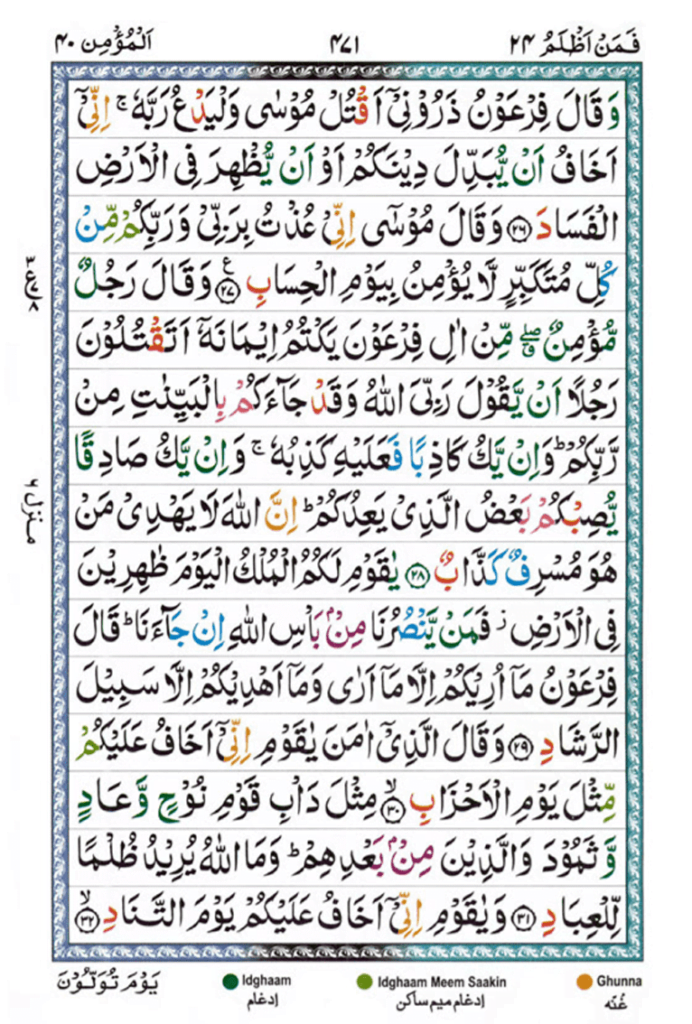 فَمَنْ اَظْلَمُ ٢٤ ٤٧١ اَلْمُؤْمِن ٤٠
وَقَالَ فِرْعَوْنُ ذَرُوْنِیْۤ اَقْتُلْ مُوْسٰی وَلْیَدْعُ رَبَّهٗ ۚ اِنِّیْۤ
اَخَافُ اَنْ یُّبَدِّلَ دِیْنَكُمْ اَوْ اَنْ یُّظْهِرَ فِی الْاَرْضِ
الْفَسَادَ ﴿۲۶﴾ وَقَالَ مُوْسٰۤی اِنِّیْ عُذْتُ بِرَبِّیْ وَرَبِّكُمْ مِّنْ
كُلِّ مُتَكَبِّرٍ لَّا یُؤْمِنُ بِیَوْمِ الْحِسَابِ ﴿۲۷﴾ ع وَقَالَ رَجُلٌ
مُّؤْمِنٌ ۖق مِّنْ اٰلِ فِرْعَوْنَ یَكْتُمُ اِیْمَانَهٗۤ اَتَقْتُلُوْنَ
رَجُلًا اَنْ یَّقُوْلَ رَبِّیَ اللّٰهُ وَقَدْ جَآءَكُمْ بِالْبَیِّنٰتِ مِنْ
رَّبِّكُمْ ؕ وَاِنْ یَّكُ كَاذِبًا فَعَلَیْهِ كَذِبُهٗ ۚ وَاِنْ یَّكُ صَادِقًا
یُّصِبْكُمْ بَعْضُ الَّذِیْ یَعِدُكُمْ ؕ اِنَّ اللّٰهَ لَا یَهْدِیْ مَنْ
هُوَ مُسْرِفٌ كَذَّابٌ ﴿۲۸﴾ یٰقَوْمِ لَكُمُ الْمُلْكُ الْیَوْمَ ظٰهِرِیْنَ
فِی الْاَرْضِ ز فَمَنْ یَّنْصُرُنَا مِنْۢ بَاْسِ اللّٰهِ اِنْ جَآءَنَا ؕ قَالَ
فِرْعَوْنُ مَاۤ اُرِیْكُمْ اِلَّا مَاۤ اَرٰی وَمَاۤ اَهْدِیْكُمْ اِلَّا سَبِیْلَ
الرَّشَادِ ﴿۲۹﴾ وَقَالَ الَّذِیْۤ اٰمَنَ یٰقَوْمِ اِنِّیْۤ اَخَافُ عَلَیْكُمْ
مِّثْلَ یَوْمِ الْاَحْزَابِ ﴿۳۰﴾ ۙ مِثْلَ دَاْبِ قَوْمِ نُوْحٍ وَّعَادٍ
وَّثَمُوْدَ وَالَّذِیْنَ مِنْۢ بَعْدِهِمْ ؕ وَمَا اللّٰهُ یُرِیْدُ ظُلْمًا
لِّلْعِبَادِ ﴿۳۱﴾ وَیٰقَوْمِ اِنِّیْۤ اَخَافُ عَلَیْكُمْ یَوْمَ التَّنَادِ ﴿۳۲﴾ ۙ
منزل ٦
یَوْمَ تُوَلُّوْنَ
Idghaam
ادغام
Idghaam Meem Saakin
ادغام میم ساکن
Ghunna
غُنّه